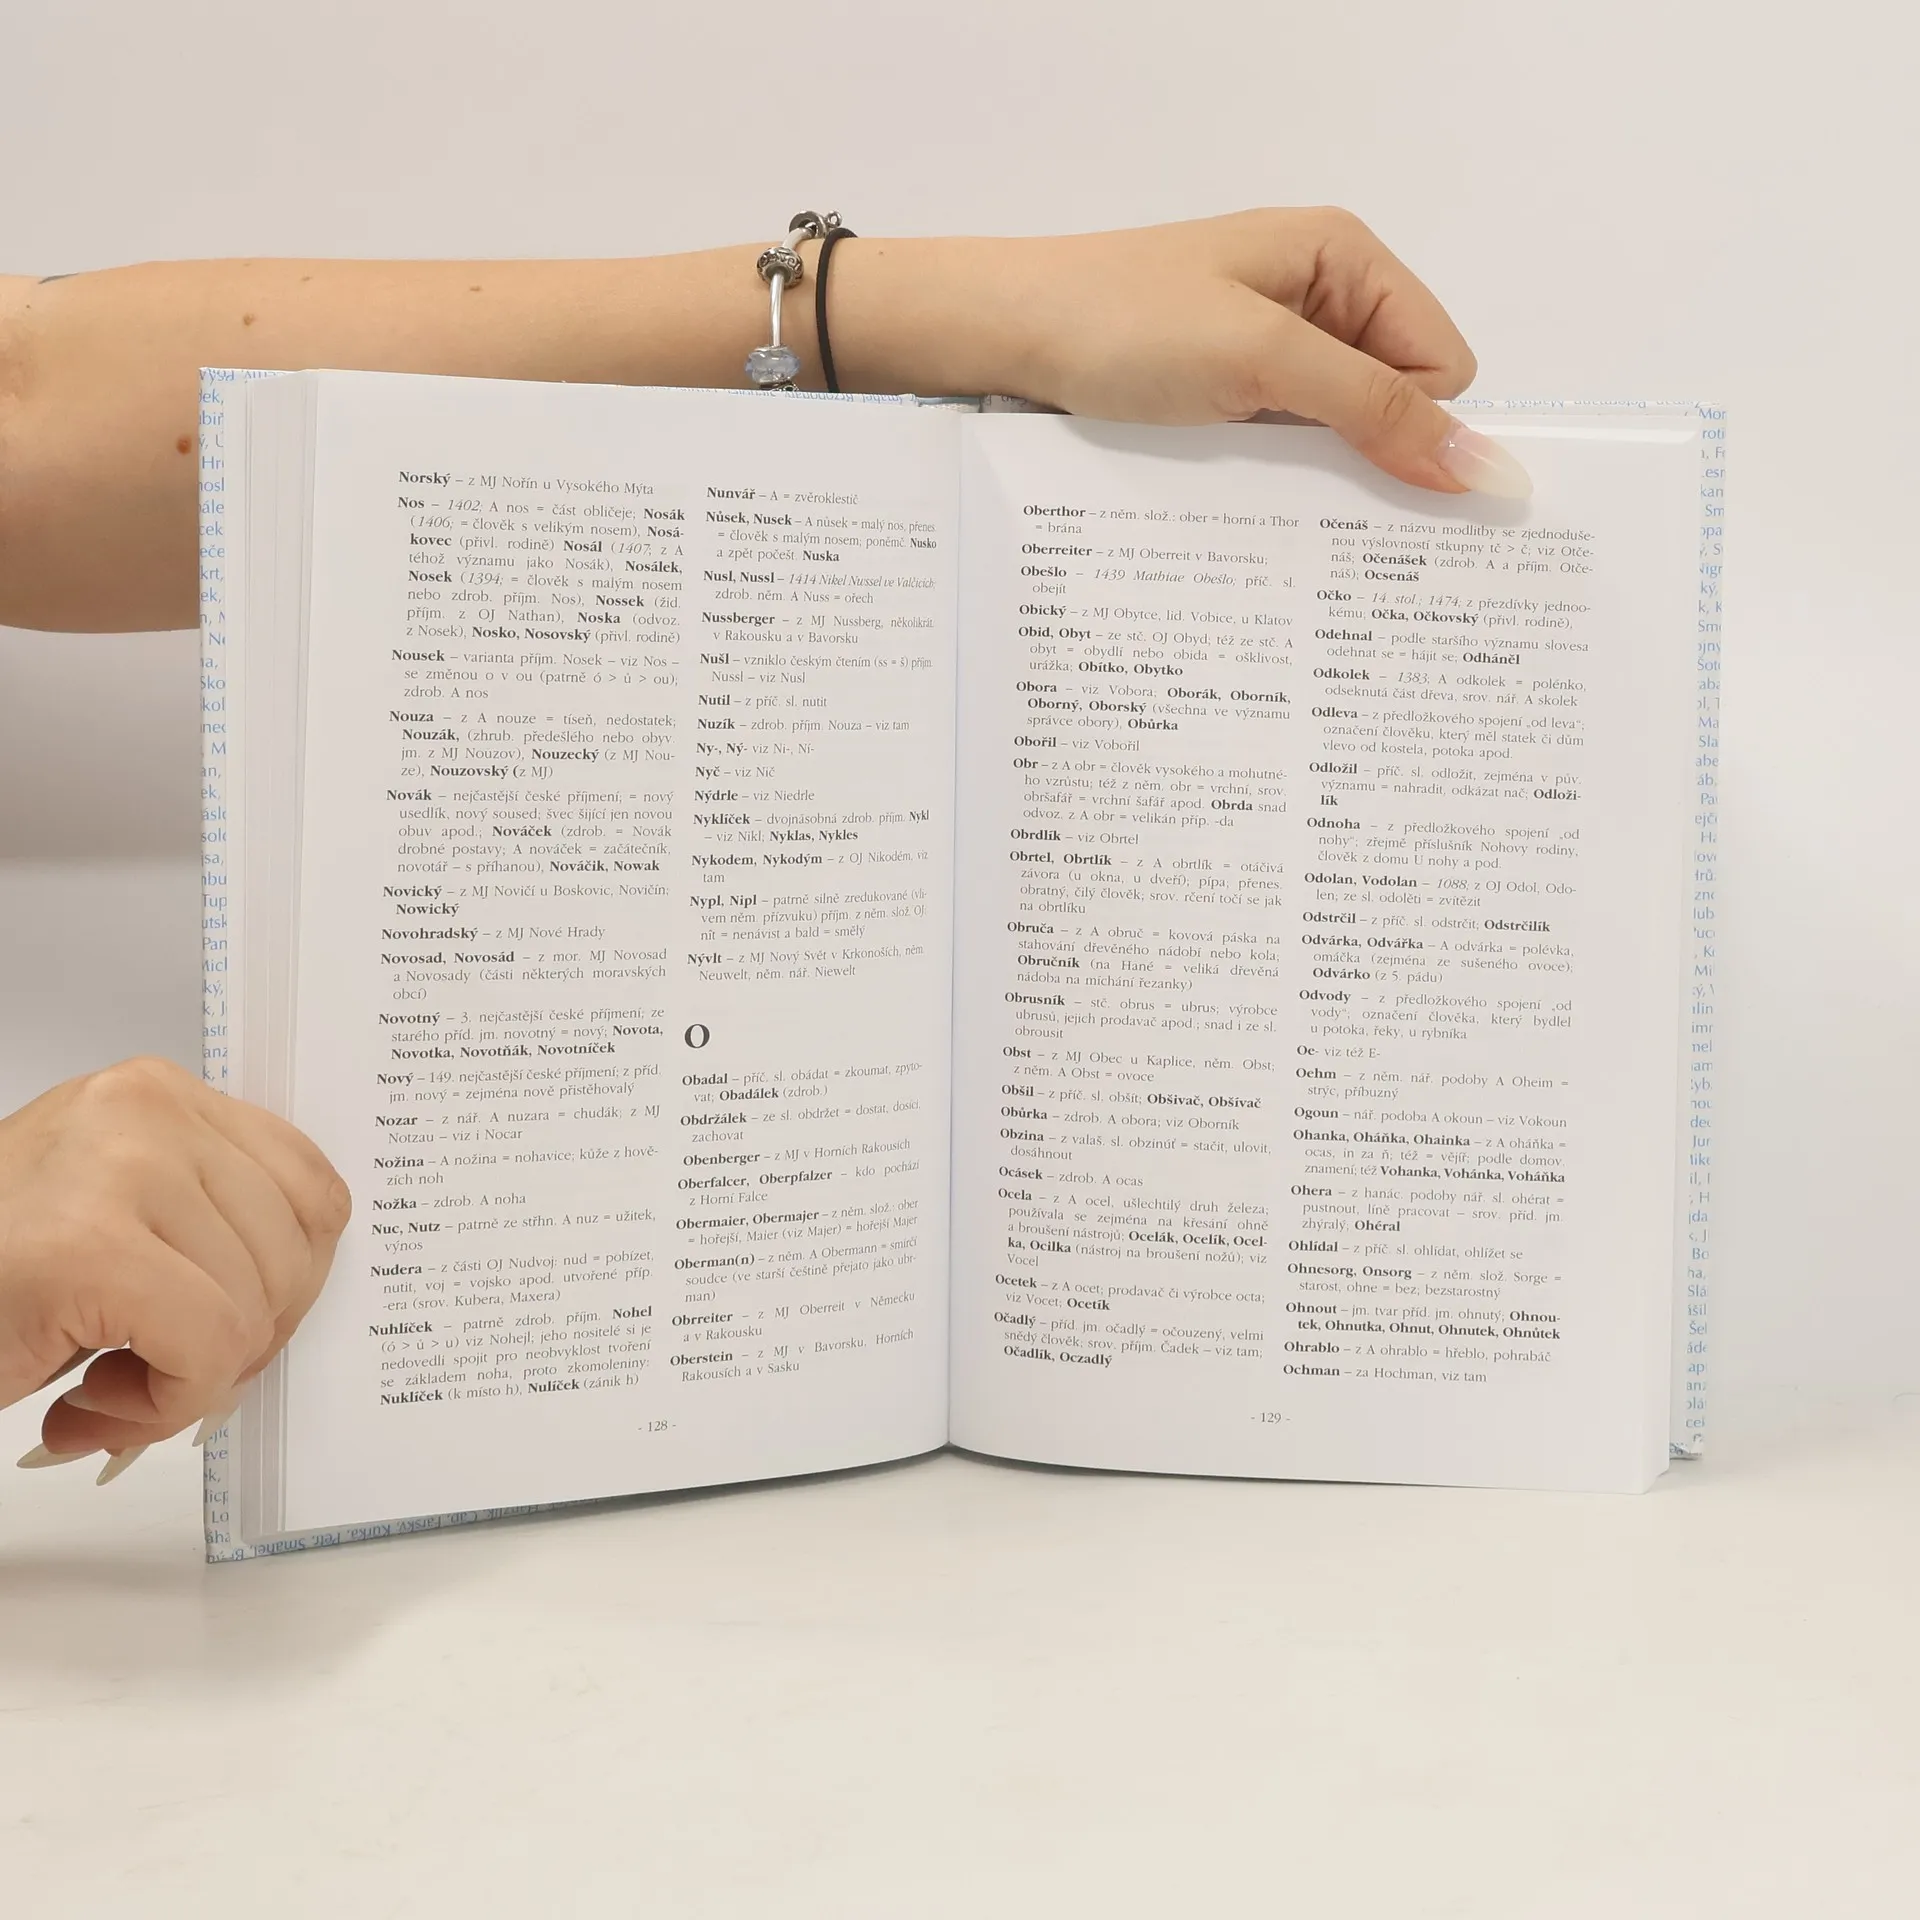 Norský – z MJ Nořín u Vysokého Mýta
Nos – 1402; A nos = část obličeje; Nosák
(1406; = člověk s velikým nosem), Nosá-
kovec (přivl. rodině) Nosál (1407; z A
téhož významu jako Nosák), Nosálek,
Nosek (1394; = člověk s malým nosem
nebo zdrob. příjm. Nos), Nossek (žid.
příjm. z OJ Nathan), Noska (odvoz.
z Nosek), Nosko, Nosovský (přivl. rodině)
Nousek – varianta příjm. Nosek – viz Nos –
se změnou o v ou (patrně ó > ů > ou);
zdrob. A nos
Nouza – z A nouze = tíseň, nedostatek;
Nouzák, (zhrub. předešlého nebo obyv.
jm. z MJ Nouzov), Nouzecký (z MJ Nou-
ze), Nouzovský (z MJ)
Novák – nejčastější české příjmení; = nový
usedlík, nový soused; švec šijící jen novou
obuv apod.; Nováček (zdrob. = Novák
drobné postavy; A nováček = začátečník,
novotář – s příhanou), Nováčik, Nowak
Novický – z MJ Novičí u Boskovic, Novičín;
Nowický
Novohradský – z MJ Nové Hrady
Novosad, Novosád – z mor. MJ Novosad
a Novosady (části některých moravských
obcí)
Novotný – 3. nejčastější české příjmení; ze
starého příd. jm. novotný = nový; Novota,
Novotka, Novotňák, Novotníček
Nový – 149. nejčastější české příjmení; z příd.
jm. nový = zejména nově přistěhovalý
Nozar – z nář. A nuzara = chudák; z MJ
Notzau – viz i Nocar
Nožina – A nožina = nohavice; kůže z hově-
zích noh
Nožka – zdrob. A noha
Nuc, Nutz – patrně ze střhn. A nuz = užitek,
výnos
Nudera – z části OJ Nudvoj: nud = pobízet,
nutit, voj = vojsko apod. utvořené příp.
-era (srov. Kubera, Maxera)
Nuhlíček – patrně zdrob. příjm. Nohel
(ó > ů > u) viz Nohejl; jeho nositelé si je
nedovedli spojit pro neobvyklost tvoření
se základem noha, proto zkomoleniny:
Nuklíček (k místo h), Nulíček (zánik h)
Nunvář – A = zvěroklestič
Nůsek, Nusek – A nůsek = malý nos, přenes.
= člověk s malým nosem; poněmč. Nusko
a zpět počešt. Nuska
Nusl, Nussl – 1414 Nikel Nussel ve Valčicích;
zdrob. něm. A Nuss = ořech
Nussberger – z MJ Nussberg, několikrát
v Rakousku a v Bavorsku
Nušl – vzniklo českým čtením (ss = š) příjm.
Nussl – viz Nusl
Nutil – z příč. sl. nutit
Nuzík – zdrob. příjm. Nouza – viz tam
Ny-, Ný- viz Ni-, Ní-
Nyč – viz Nič
Nýdrle – viz Niedrle
Nyklíček – dvojnásobná zdrob. příjm. Nykl
– viz Nikl; Nyklas, Nykles
Nykodem, Nykodým – z OJ Nikodém, viz
tam
Nypl, Nipl – patrně silně zredukované (vli-
vem něm. přízvuku) příjm. z něm. slož. OJ:
nít = nenávist a bald = smělý
Nývlt – z MJ Nový Svět v Krkonoších, něm.
Neuwelt, něm. nář. Niewelt
O
Obadal – příč. sl. obádat = zkoumat, zpyto-
vat; Obadálek (zdrob.)
Obdržálek – ze sl. obdržet = dostat, dosíci,
zachovat
Obenberger – z MJ v Horních Rakousích
Oberfalcer, Oberpfalzer – kdo pochází
z Horní Falce
Obermaier, Obermajer – z něm. slož.: ober
= hořejší, Maier (viz Majer) = hořejší Majer
Oberman(n) – z něm. A Obermann = smírčí
soudce (ve starší češtině přejato jako ubr-
man)
Obrreiter – z MJ Oberreit v Německu
a v Rakousku
Oberstein – z MJ v Bavorsku, Horních
Rakousích a v Sasku
- 128 -
Oberthor – z něm. slož.: ober = horní a Thor
= brána
Oberreiter – z MJ Oberreit v Bavorsku;
Obešlo – 1439 Mathiae Obešlo; příč. sl.
obejít
Obický – z MJ Obytce, lid. Vobice, u Klatov
Obid, Obyt – ze stč. OJ Obyd; též ze stč. A
obyt = obydlí nebo obida = ošklivost,
urážka; Obítko, Obytko
Obora – viz Vobora; Oborák, Oborník,
Oborný, Oborský (všechna ve významu
správce obory), Obůrka
Obořil – viz Vobořil
Obr – z A obr = člověk vysokého a mohutné-
ho vzrůstu; též z něm. obr = vrchní, srov.
obršafář = vrchní šafář apod. Obrda snad
odvoz. z A obr = velikán příp. -da
Obrdlík – viz Obrtel
Obrtel, Obrtlík – z A obrtlík = otáčivá
závora (u okna, u dveří); pípa, přenes.
obratný, čilý člověk; srov. rčení točí se jak
na obrtlíku
Obruča – z A obruč = kovová páska na
stahování dřevěného nádobí nebo kola;
Obručník (na Hané = veliká dřevěná
nádoba na míchání řezanky)
Obrusník – stč. obrus = ubrus; výrobce
ubrusů, jejich prodavač apod.; snad i ze sl.
obrousit
Obst – z MJ Obec u Kaplice, něm. Obst;
z něm. A Obst = ovoce
Obšil – z příč. sl. obšít; Obšivač, Obšívač
Obůrka – zdrob. A obora; viz Oborník
Obzina – z valaš. sl. obzinúť = stačit, ulovit,
dosáhnout
Ocásek – zdrob. A ocas
Ocela – z A ocel, ušlechtilý druh železa;
používala se zejména na křesání ohně
a broušení nástrojů; Ocelák, Ocelík, Ocel-
ka, Ocilka (nástroj na broušení nožů); viz
Vocel
Ocetek – z A ocet; prodavač či výrobce octa;
viz Vocet; Ocetík
Očadlý – příd. jm. očadlý = očouzený, velmi
snědý člověk; srov. příjm. Čadek – viz tam;
Očadlík, Oczadlý
Očenáš – z názvu modlitby se zjednoduše-
nou výslovností stkupny tč > č; viz Otče-
náš; Očenášek (zdrob. A a příjm. Otče-
náš); Ocsenáš
Očko – 14. stol.; 1474; z přezdívky jednoo-
kému; Očka, Očkovský (přivl. rodině),
Odehnal – podle staršího významu slovesa
odehnat se = hájit se; Odháněl
Odkolek – 1383; A odkolek = polénko,
odseknutá část dřeva, srov. nář. A skolek
Odleva – z předložkového spojení „od leva“;
označení člověku, který měl statek či dům
vlevo od kostela, potoka apod.
Odložil – příč. sl. odložit, zejména v pův.
významu = nahradit, odkázat nač; Odloži-
lík
Odnoha – z předložkového spojení „od
nohy“; zřejmě příslušník Nohovy rodiny,
člověk z domu U nohy a pod.
Odolan, Vodolan – 1088; z OJ Odol, Odo-
len; ze sl. odoleti = zvítězit
Odstrčil – z příč. sl. odstrčit; Odstrčilík
Odvárka, Odvářka – A odvárka = polévka,
omáčka (zejména ze sušeného ovoce);
Odvárko (z 5. pádu)
Odvody – z předložkového spojení „od
vody“; označení člověka, který bydlel
u potoka, řeky, u rybníka
Oe- viz též E-
Oehm – z něm. nář. podoby A Oheim =
strýc, příbuzný
Ogoun – nář. podoba A okoun – viz Vokoun
Ohanka, Oháňka, Ohainka – z A oháňka =
ocas, in za ň; též = vějíř; podle domov.
znamení; též Vohanka, Vohánka, Voháňka
Ohera – z hanác. podoby nář. sl. ohérat =
pustnout, líně pracovat – srov. příd. jm.
zhýralý; Ohéral
Ohlídal – z příč. sl. ohlídat, ohlížet se
Ohnesorg, Onsorg – z něm. slož. Sorge =
starost, ohne = bez; bezstarostný
Ohnout – jm. tvar příd. jm. ohnutý; Ohnou-
tek, Ohnutka, Ohnut, Ohnutek, Ohnůtek
Ohrablo – z A ohrablo = hřeblo, pohrabáč
Ochman – za Hochman, viz tam
- 129 -